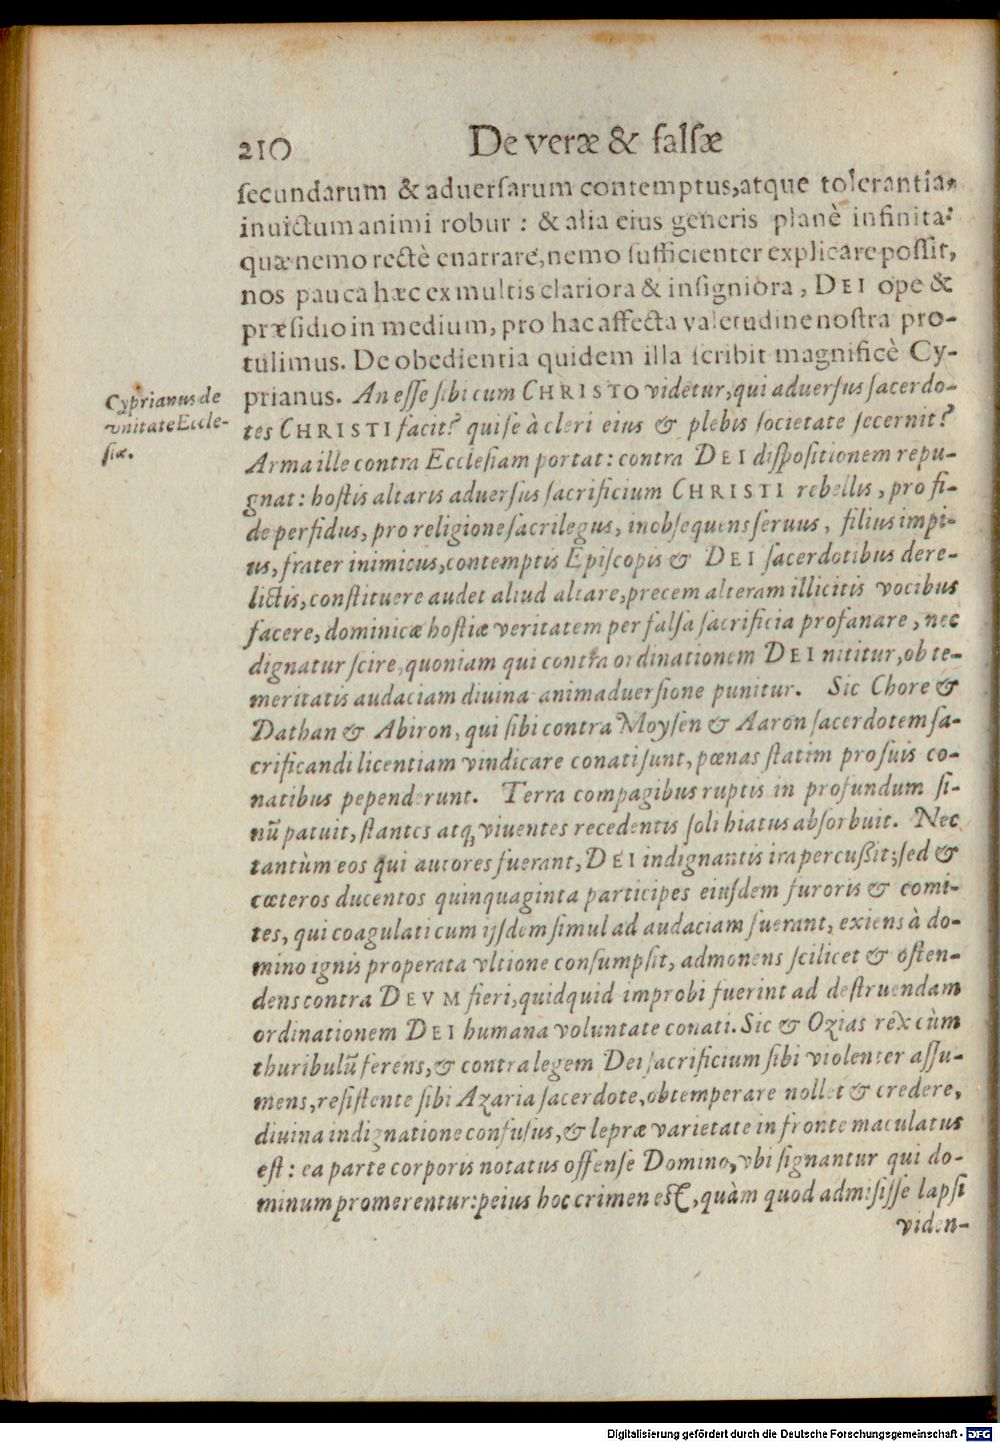 210 De veræ & falsæ
ſecundarum & aduerſarum contemptus, atque tolerantia,
inuictum animi robur : & alia eius generis planè infinita:
quæ nemo rectè enarrare, nemo ſufficienter explicare poſſit,
nos pauca hæc ex multis clariora & inſigniora, DEI ope &
præſidio in medium, pro hac affecta valetudine noſtra pro-
tulimus. De obedientia quidem illa ſcribit magnificè Cy-
prianus. An eſſe ſibi cum CHRISTO videtur, qui aduerſus ſacerdo-
Cyprianus de
vnitate Eccle-
ſiæ.
tes CHRISTI facit? qui ſe à cleri eius & plebis ſocietate ſecernit?
Arma ille contra Eccleſiam portat: contra DEI diſpoſitionem repu-
gnat: hoſtis altaris aduerſus ſacrificium CHRISTI rebellis, pro fi-
de perfidus, pro religione ſacrilegus, inobſequens ſeruus, filius impi-
us, frater inimicus, contemptis Epiſcopis & DEI ſacerdotibus dere-
lictis, conſtituere audet aliud altare, precem alteram illicitis vocibus
facere, dominicæ hoſtiæ veritatem per falſa ſacrificia profanare, nec
dignatur ſcire, quoniam qui contra ordinationem DEI nititur, ob te-
meritatis audaciam diuina animaduerſione punitur. Sic Chore &
Dathan & Abiron, qui ſibi contra Moyſen & Aaron ſacerdotem ſa-
crificandi licentiam vindicare conati ſunt, pœnas ſtatim pro ſuis co-
natibus pependerunt. Terra compagibus ruptis in profundum ſi-
nũ patuit, ſtantes atq́; viuentes recedentis ſoli hiatus abſorbuit. Nec
tantùm eos qui autores fuerant, DEI indignantis ira percußit; ſed &
cæteros ducentos quinquaginta participes eiuſdem furoris & comi-
tes, qui coagulati cum ijſdem ſimul ad audaciam fuerant, exiens à do-
mino ignis properata vltione conſumpſit, admonens ſcilicet & oſten-
dens contra DEVM fieri, quidquid improbi fuerint ad deſtruendam
ordinationem DEI humana voluntate conati. Sic & Ozias rex cùm
thuribulũ ferens, & contra legem Dei ſacrificium ſibi violenter aſſu-
mens, reſiſtente ſibi Azaria ſacerdote, obtemperare nollet & credere,
diuina indignatione confuſus, & lepræ varietate in fronte maculatus
eſt : ea parte corporis notatus offenſe Domino, vbi ſignantur qui do-
minum promerentur: peius hoc crimen eſt, quàm quod admiſiſſe lapſi
viden-
Digitalisierung gefördert durch die Deutsche Forschungsgemeinschaft - DFG